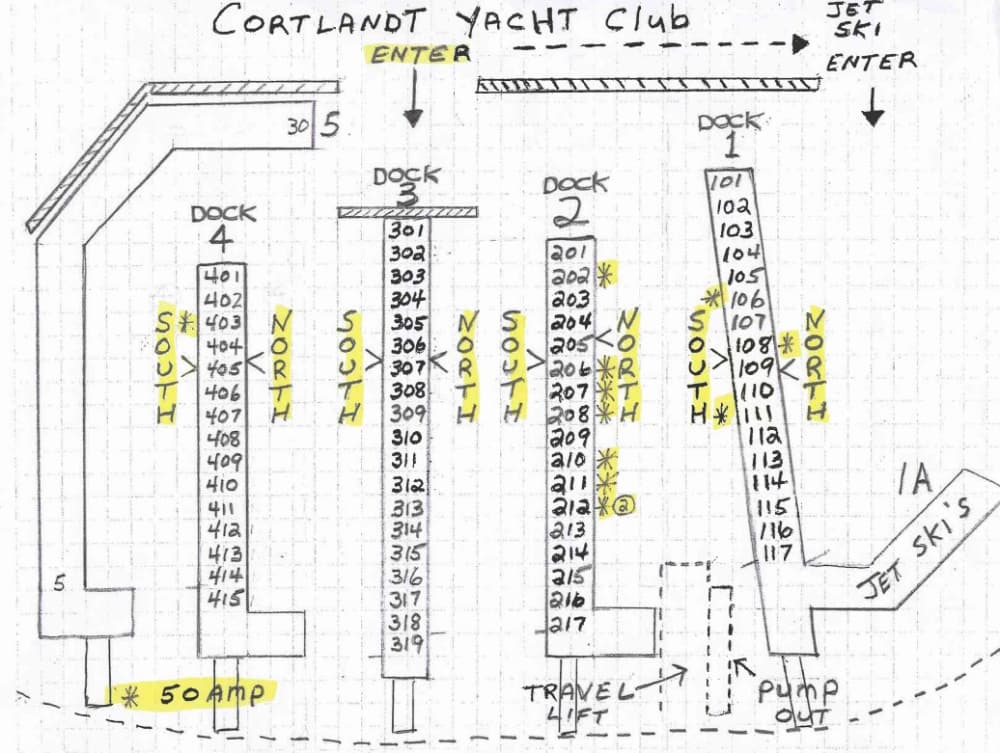 CORTLANDT YACHT Club
JET
SKI
ENTER
ENTER
30 5
DOCK
1
DOCK
2
DOCK
3
DOCK
4
101
102
103
104
105
* 106
107
108 *
109
110
* 111
112
113
114
115
116
117
SOUTH
NORTH
201
202 *
203
204
205
206 *
207 *
208 *
209
210 *
211 *
212 * 2
213
214
215
216
217
SOUTH
NORTH
301
302
303
304
305
306
307
308
309
310
311
312
313
314
315
316
317
318
319
SOUTH
NORTH
401
402
* 403
404
405
406
407
408
409
410
411
412
413
414
415
SOUTH
NORTH
1A
JET SKI'S
5
* 50 AMP
TRAVEL
LIFT
PUMP
OUT